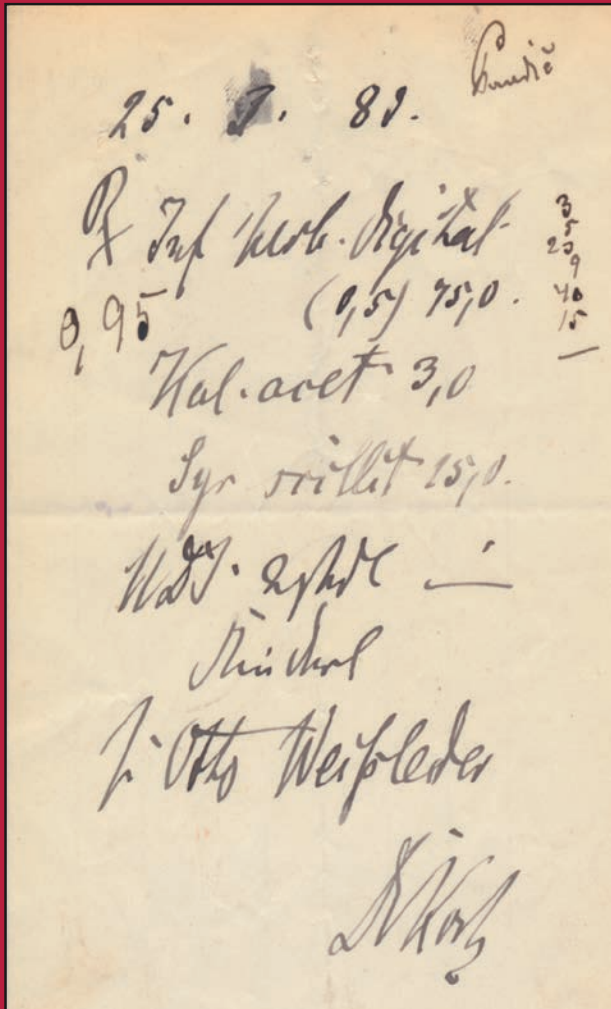 25. 9. 89.
Rx Inf herb. digital
(0,5) 75,0.
0,95
3
5
23
9
40
15
Kal. acet 3,0
Syr scillit 15,0.
MDS. 2stdl
Kinderl
f. Otto Weißleder
Dr Koch